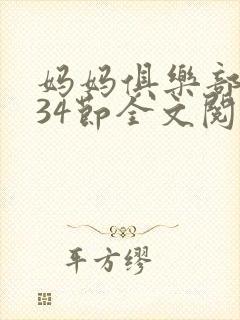 妈妈俱樂部
34節全文閱
平方缪